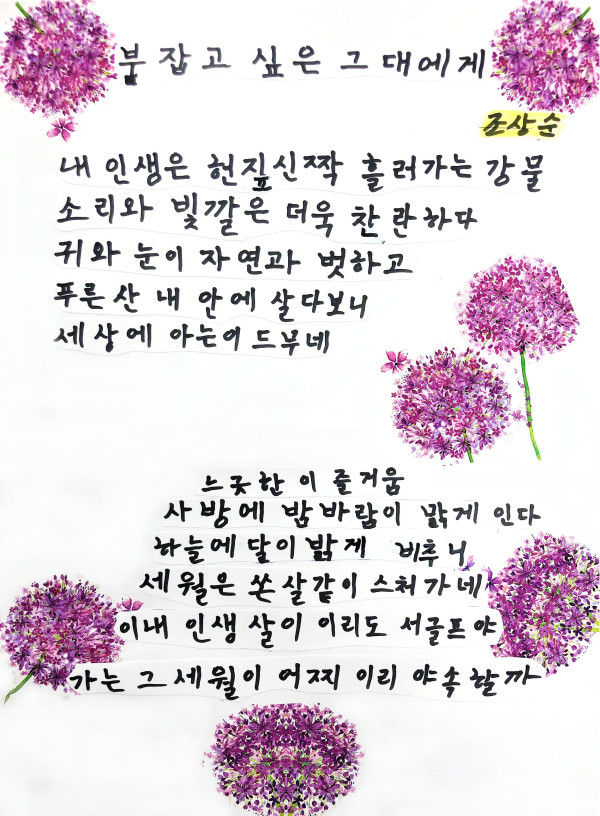 붙잡고 싶은 그대에게
조상순
내 인생은 헌짚신짝 흘러가는 강물
소리와 빛깔은 더욱 찬란하다
귀와 눈이 자연과 벗하고
푸른산 내 안에 살다보니
세상에 아는이 드무네
느긋한 이 즐거움
사방에 밤바람이 맑게 인다
하늘에 달이 밝게 비추니
세월은 쏜살같이 스쳐가네
이내 인생살이 이리도 서글프야
가는 그 세월이 어찌 이리 야속할까